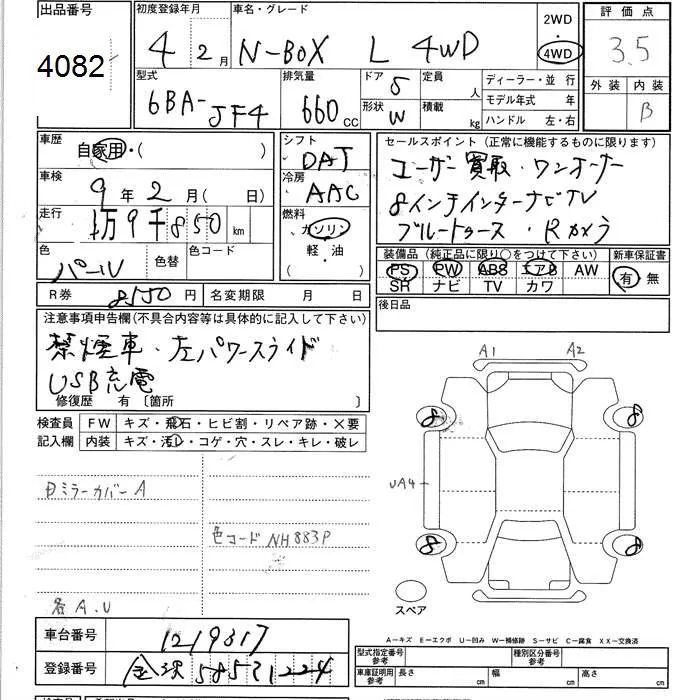 出品番号 初度登録年月 車名・グレード 2WD 評価点
4082 4 2月 N-BOX L 4WD 4WD 3.5
型式 排気量 ドア 5 定員 人 ディーラー・並 行 外装 内装
6BA-JF4 660cc 形状 W 積載 kg モデル年式 年 B
ハンドル 左・右
車歴 自家用・( ) シフト DAT セールスポイント (正常に機能するものに限ります)
車検 9年2月( 日) 冷房 AAC ユーザー買取・ワンオーナー
走行 1万9千850km 燃料 ガソリン 8インチインターナビTV
色 パール 色替 色コード 軽・油 ( ) ブルートゥース・Rカメラ
装備品 (純正品に限り○をつけて下さい) 新車保証書
PS PW ABS エアB AW 有・無
SR ナビ TV カワ
R券 8550円 名変期限 月 日 後日品
注意事項申告欄(不具合内容等は具体的に記入して下さい)
禁煙車・左パワースライド
USB充電
修復歴 有〔箇所 〕
A1 A2
検査員 FW キズ・飛石・ヒビ割・リペア跡・×要
記入欄 内装 キズ・汚レ・コゲ・穴・スレ・キレ・破レ
8 8
ミラーカバーA UA4
色コードNH883P
8 8
各A.U スペア
A-キズ E-エクボ U-凹み W-補修跡 S-サビ C-腐食 XX-交換済
車台番号 1219317 型式指定番号 参考 種別区分番号 参考
登録番号 585 1224 車庫証明用 参考 長さ cm 幅 cm 高さ cm